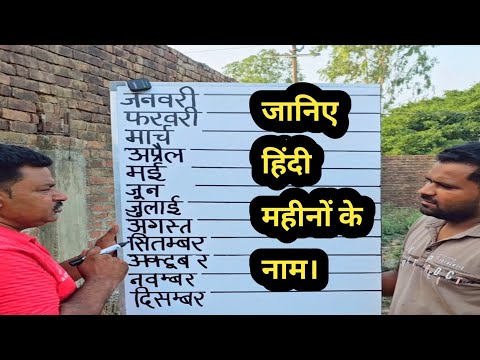 जनवरी
फरवरी
मार्च
अप्रैल
मई
जून
जुलाई
अगस्त
सितम्बर
अक्टूबर
नवम्बर
दिसम्बर
जानिए
हिंदी
महीनों के
नाम।